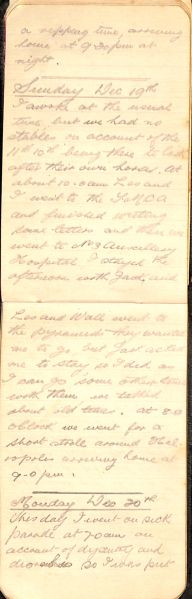 a ripping time, arriving
home at 9-30 pm at
night.
Sunday Dec 19th
I awoke at the usual
time, but we had no
stables on account of the
11th 10th being there to look
after their own horses. At
about 10-0am Les and
I went to the Y.M.C.A
and finished writing
some letters and then we
went to No 3 Auxiliary
Hospital I stayed the
afternoon with Jack, and
Les and Wall went to
the pyramids they wanted
me to go but Jack asked
me to stay so I did as
I can go some other time
with them, we talked
about old times. at 8-0
o'clock we went for a
short stroll around Hel-
-opolis arriving home at
9-0 pm.
Monday Dec 20th
This day I went on sick
parade at 7-0am on
account of dysentry and
so I was put